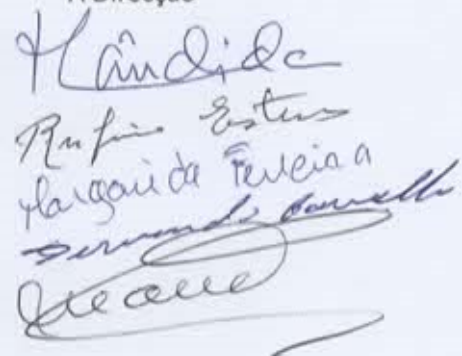 A Direcção
Cândida
Rufino Esteves
Margarida Ferreira
Fernando